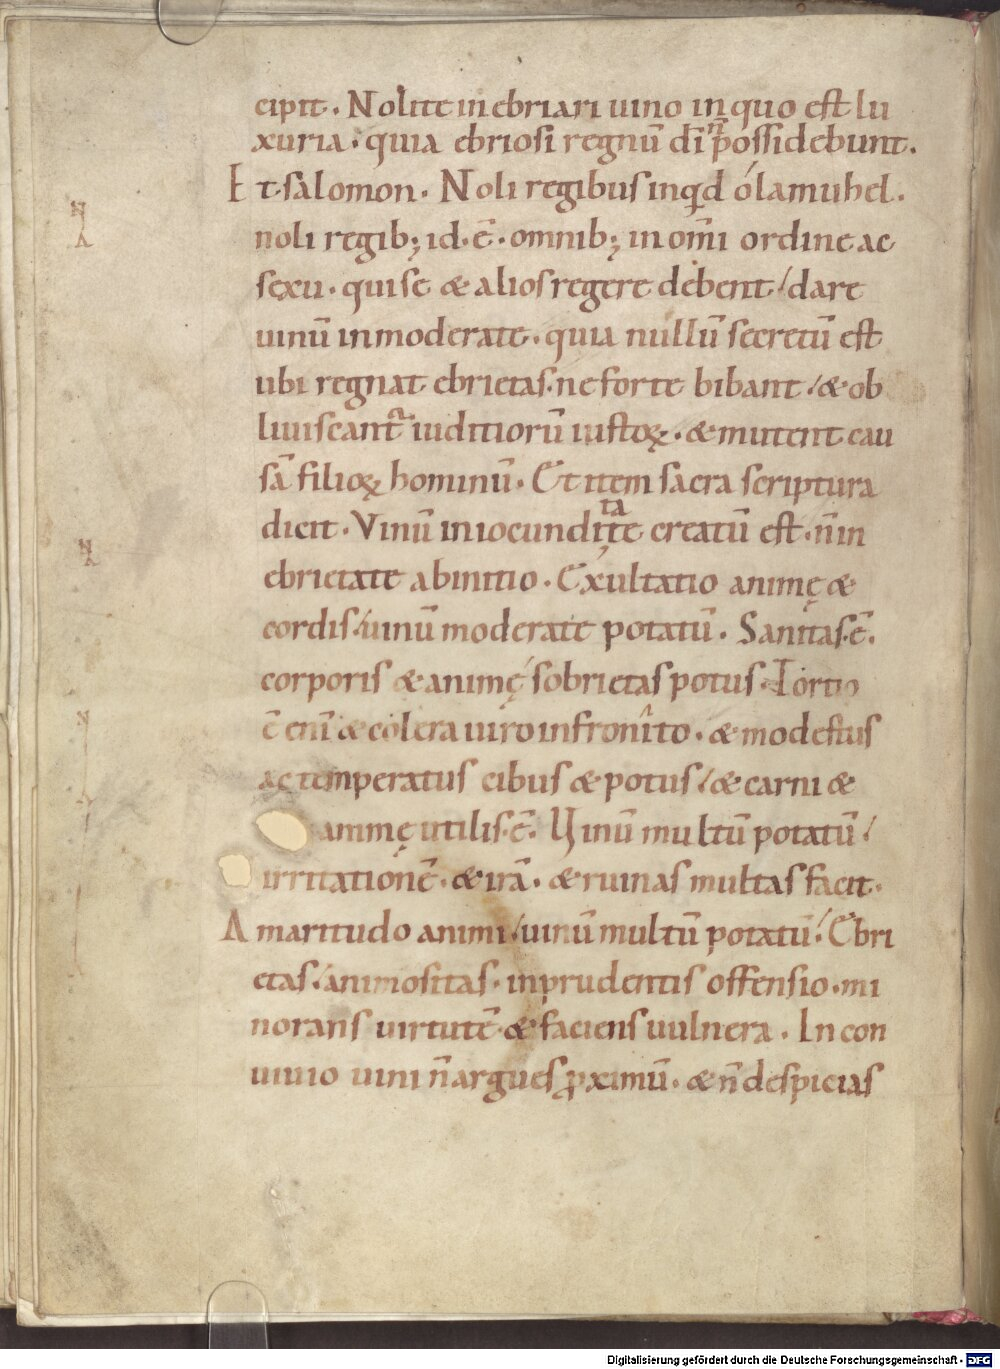 cipit. Nolite inebriari uino in quo est lu
xuria. quia ebriosi regnū dī n̄ possidebunt.
Et salomon. Noli regibus inq̄d ó lamuhel.
noli regib; id. ē. omnib; in om̄i ordine ac
sexu. qui se & alios regere debent / dare
uinū inmoderate. quia nullū secretū est
ubi regnat ebrietas. ne forte bibant / & ob
liuiscant̄ iuditiorū iustoꝝ. & mutent cau
sā filioꝝ hominū. Et item sacra scriptura
dicit. Vinū in iocunditate creatū est. n̄ in
ebrietate ab initio. Exultatio animę &
cordis / uinū moderate potatū. Sanitas. ē.
corporis & animę / sobrietas potus. Tortio
ē eni & colera uiro infronito. & modestus
ac temperatus cibus & potus / & carni &
animę utilis. ē. Uinū multū potatū /
irritationē. & irā. & ruinas multas facit.
Amaritudo animi / uinū multū potatū / Ebri
etas / animositas. inprudentis offensio. mi
norans uirtutē. & faciens uulnera. In con
uiuio uini n̄ argues ꝓximū. & n̄ despicias
N
A
N
A
N
Digitalisierung gefördert durch die Deutsche Forschungsgemeinschaft - DFG